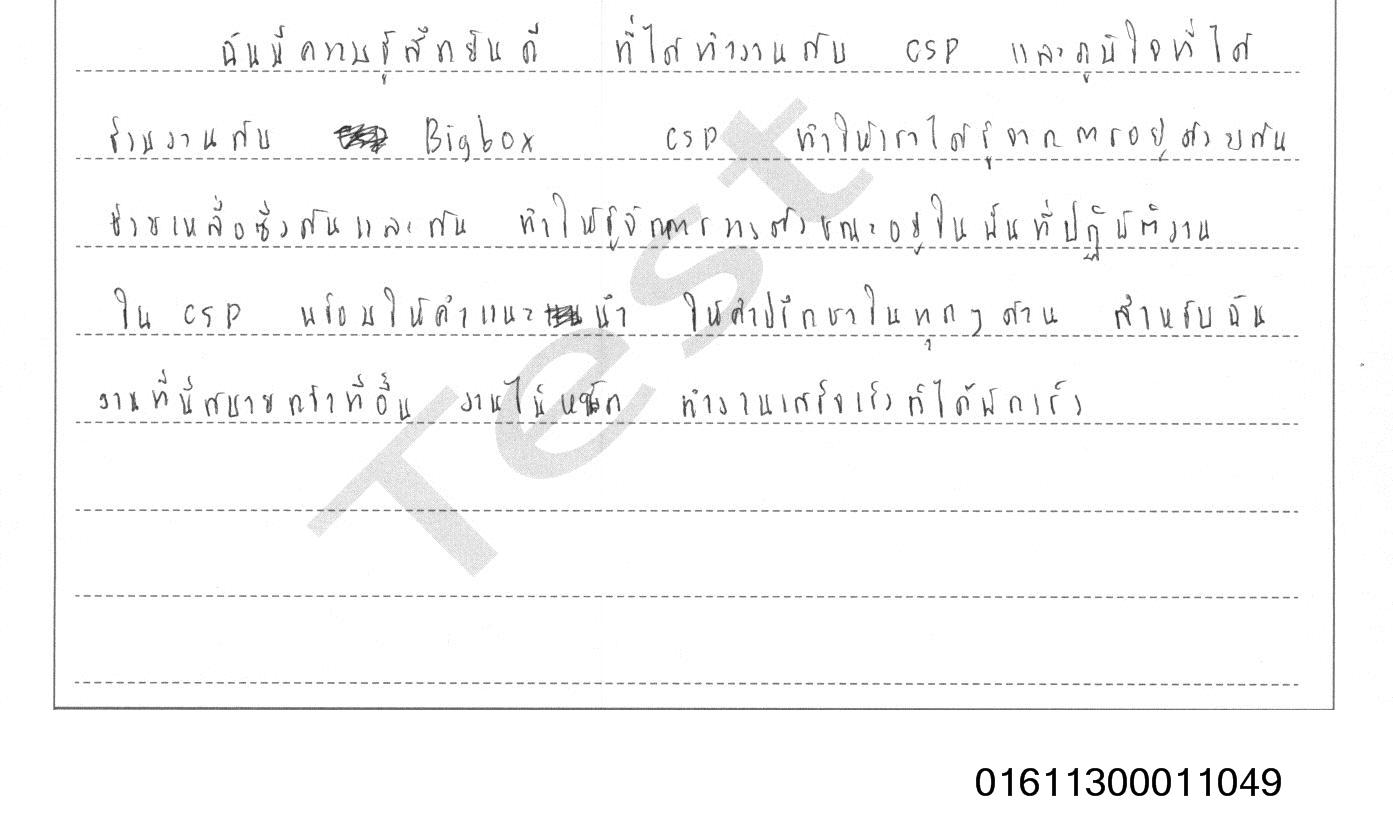 ฉันมีความรู้สึกยินดี ที่ได้ทำงานกับ CSP และภูมิใจที่ได้
ร่วมงานกับ Bigbox CSP ทำให้เราได้รู้จากการอยู่ด้วยกัน
ช่วยเหลือซึ่งกันและกัน ทำให้รู้จักการวางตัวขณะอยู่ในพื้นที่ปฏิบัติงาน
ใน CSP พร้อมให้คำแนะนำ ให้คำปรึกษาในทุกๆ ด้าน สำหรับฉัน
งานที่นี่สบายกว่าที่อื่น งานไม่หนัก ทำงานเสร็จเร็วก็ได้พักเร็ว
Test
01611300011049